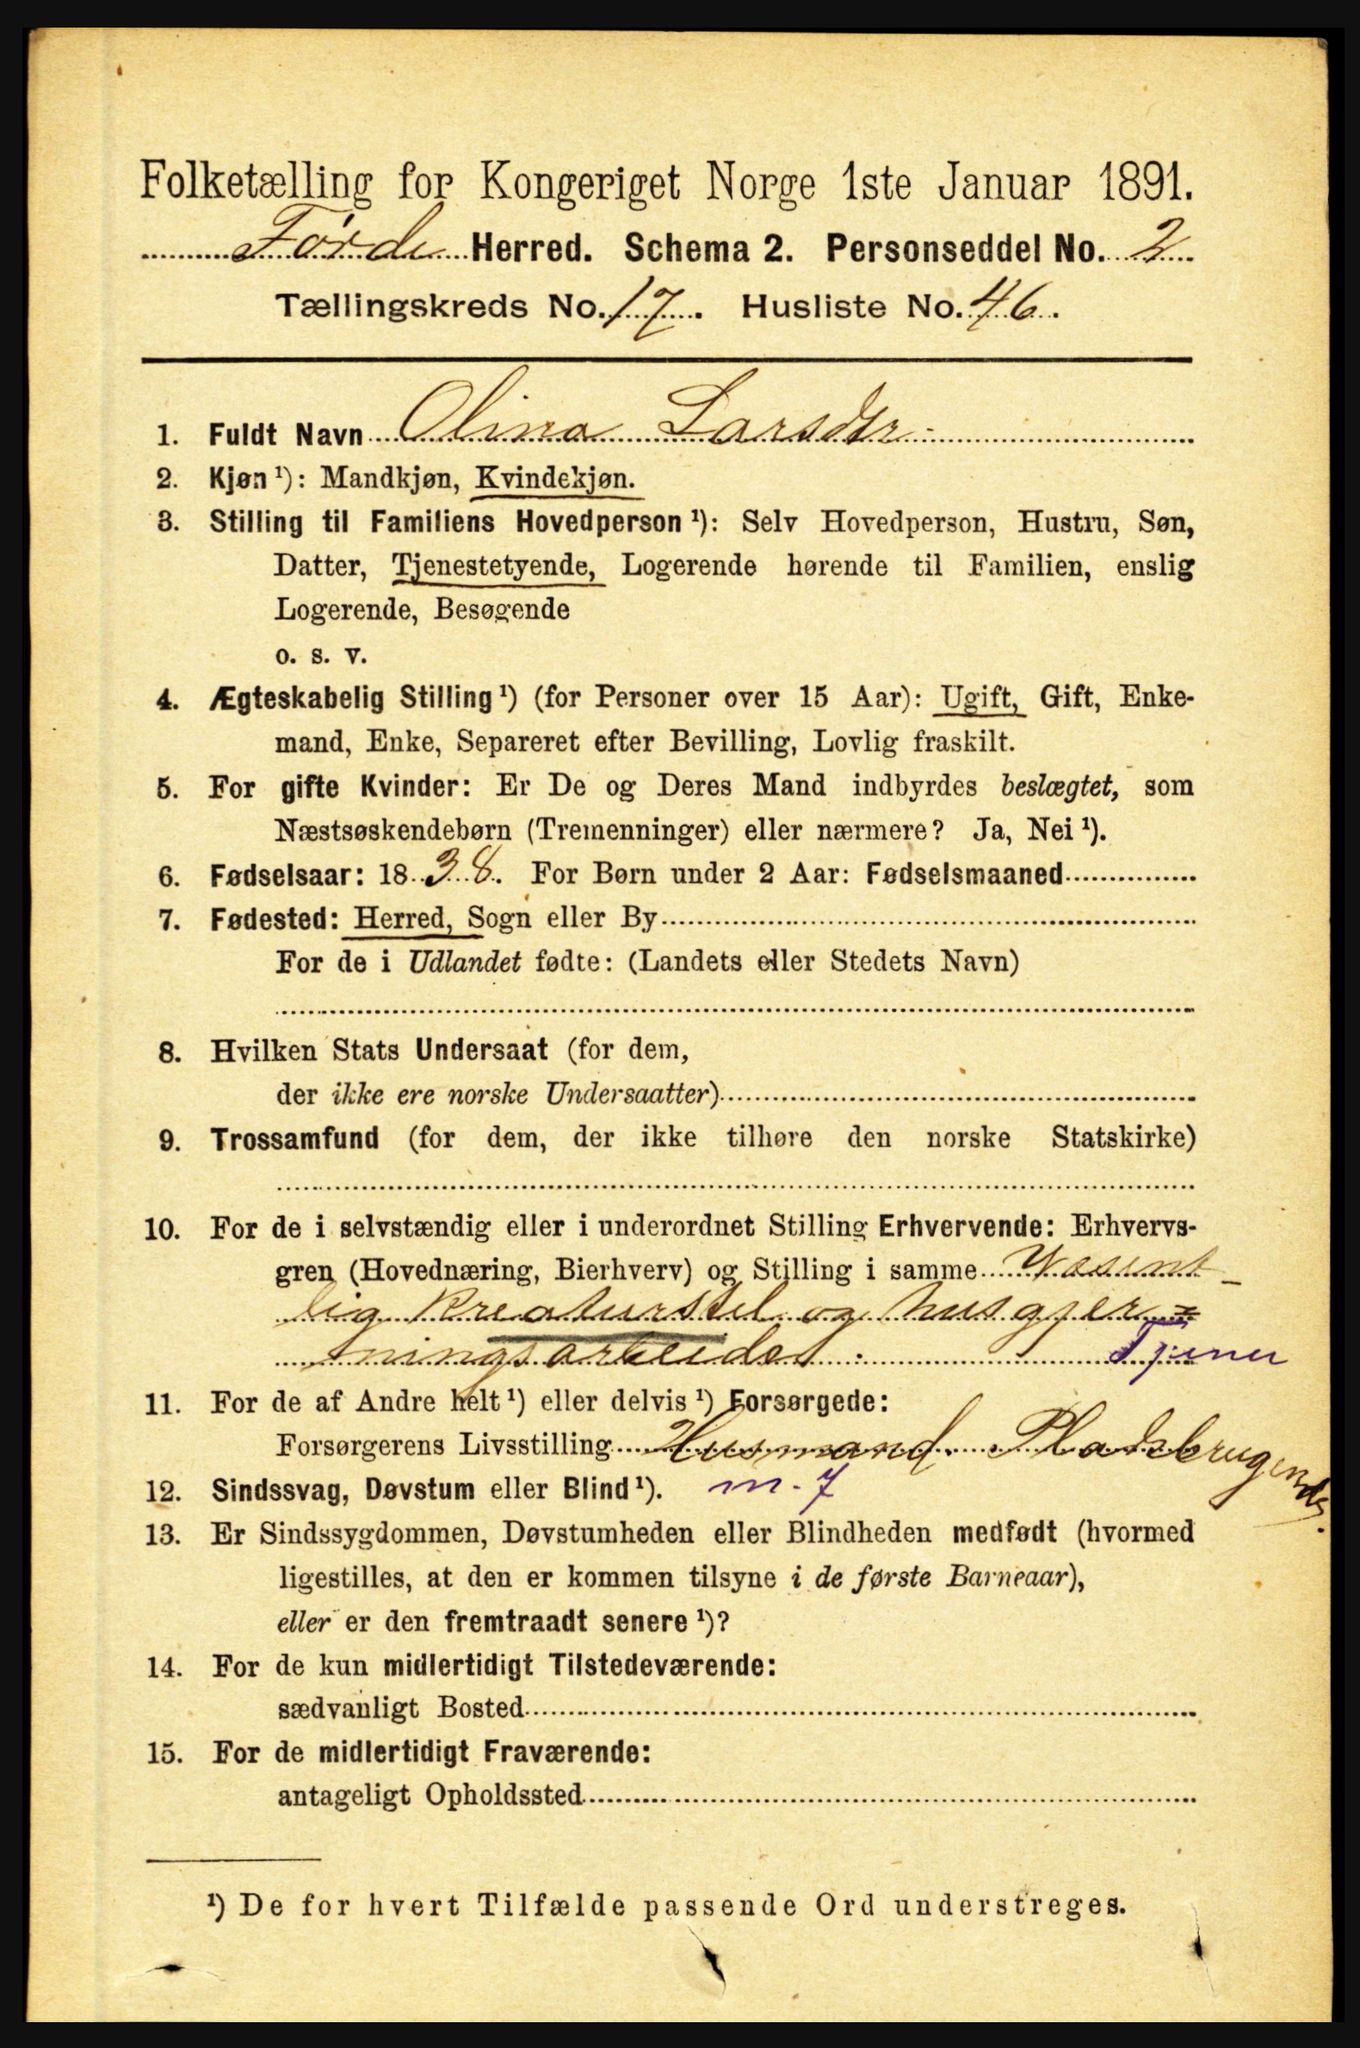 Folketælling for Kongeriget Norge 1ste Januar 1891.
Førde Herred. Schema 2. Personseddel No. 2
Tællingskreds No. 17. Husliste No. 46.
1. Fuldt Navn Olina Larsdtr
2. Kjøn ¹): Mandkjøn, Kvindekjøn.
3. Stilling til Familiens Hovedperson ¹): Selv Hovedperson, Hustru, Søn,
Datter, Tjenestetyende, Logerende hørende til Familien, enslig
Logerende, Besøgende
o. s. v.
4. Ægteskabelig Stilling ¹) (for Personer over 15 Aar): Ugift, Gift, Enke-
mand, Enke, Separeret efter Bevilling, Lovlig fraskilt.
5. For gifte Kvinder: Er De og Deres Mand indbyrdes beslægtet, som
Næstsøskendebørn (Tremenninger) eller nærmere? Ja, Nei ¹).
6. Fødselsaar: 1838. For Børn under 2 Aar: Fødselsmaaned
7. Fødested: Herred, Sogn eller By
For de i Udlandet fødte: (Landets eller Stedets Navn)
8. Hvilken Stats Undersaat (for dem,
der ikke ere norske Undersaatter)
9. Trossamfund (for dem, der ikke tilhøre den norske Statskirke)
10. For de i selvstændig eller i underordnet Stilling Erhvervende: Erhvervs-
gren (Hovednæring, Bierhverv) og Stilling i samme Væsent-
lig Kreaturstel og husgjer=
ningsarbeide. Tjener
11. For de af Andre helt ¹) eller delvis ¹) Forsørgede:
Forsørgerens Livsstilling Husmand Pladsbrugende.
12. Sindssvag, Døvstum eller Blind ¹). m. 7
13. Er Sindssygdommen, Døvstumheden eller Blindheden medfødt (hvormed
ligestilles, at den er kommen tilsyne i de første Barneaar),
eller er den fremtraadt senere ¹)?
14. For de kun midlertidigt Tilstedeværende:
sædvanligt Bosted
15. For de midlertidigt Fraværende:
antageligt Opholdssted
¹) De for hvert Tilfælde passende Ord understreges.